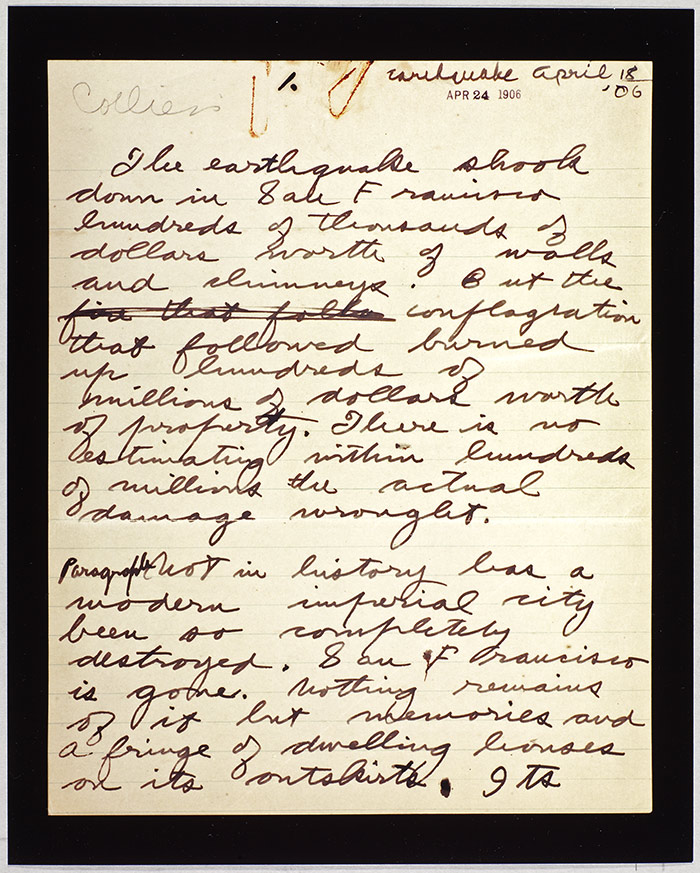 Colliers
1.
Earthquake April 18
'06
APR 24 1906
The earthquake shook
down in San Francisco
hundreds of thousands of
dollars worth of walls
and chimneys. But the
fire that follo conflagration
that followed burned
up hundreds of
millions of dollars worth
of property. There is no
estimating within hundreds
of millions the actual
damage wrought.
Paragraph Not in history has a
modern imperial city
been so completely
destroyed. San Francisco
is gone. Nothing remains
of it but memories and
a fringe of dwelling houses
on its outskirts. Its